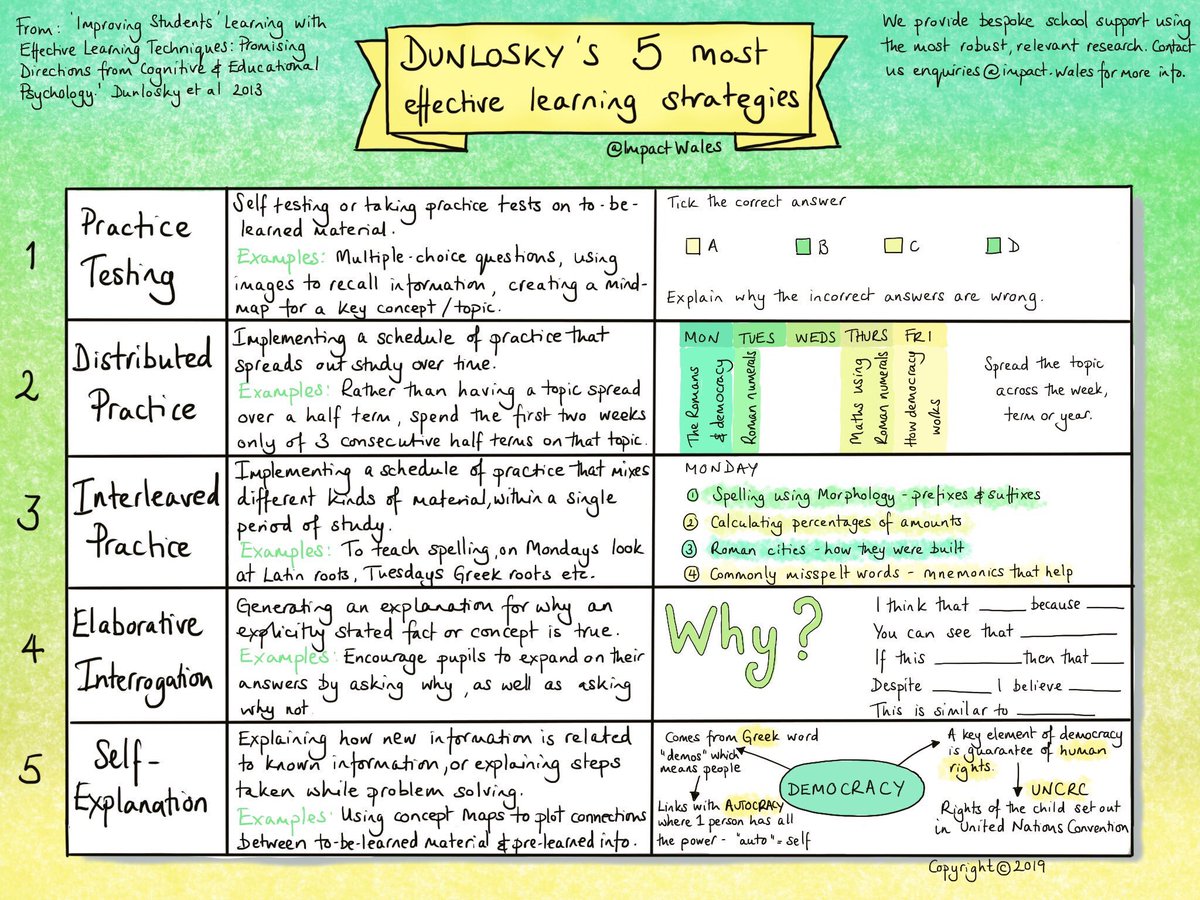 From: 'Improving Students' Learning with
Effective Learning Techniques: Promising
Directions from Cognitive & Educational
Psychology.' Dunlosky et al 2013
DUNLOSKY'S 5 most
effective learning strategies
@ImpactWales
We provide bespoke school support using
the most robust, relevant research. Contact
us enquiries@impact.wales for more info.
1
Practice
Testing
Self testing or taking practice tests on to-be-
learned material.
Examples: Multiple-choice questions, using
images to recall information, creating a mind-
map for a key concept/topic.
Tick the correct answer
A
B
C
D
Explain why the incorrect answers are wrong.
2
Distributed
Practice
Implementing a schedule of practice that
spreads out study over time.
Examples: Rather than having a topic spread
over a half term, spend the first two weeks
only of 3 consecutive half terms on that topic.
MON
TUES
WEDS
THURS
FRI
The Romans
& democracy
Roman numerals
Maths using
Roman numerals
How democracy
works
Spread the topic
across the week,
term or year.
3
Interleaved
Practice
Implementing a schedule of practice that mixes
different kinds of material, within a single
period of study.
Examples: To teach spelling, on Mondays look
at Latin roots, Tuesdays Greek roots etc.
MONDAY
1 Spelling using Morphology - prefixes & suffixes
2 Calculating percentages of amounts
3 Roman cities - how they were built
4 Commonly misspelt words - mnemonics that help
4
Elaborative
Interrogation
Generating an explanation for why an
explicitly stated fact or concept is true.
Examples: Encourage pupils to expand on their
answers by asking why, as well as asking
why not
Why?
I think that ______ because _____
You can see that ____________
If this ___________ then that ____
Despite _______ I believe ______
This is similar to __________
5
Self-
Explanation
Explaining how new information is related
to known information, or explaining steps
taken while problem solving.
Examples: Using concept maps to plot connections
between to-be-learned material & pre-learned info.
Comes from Greek word
"demos" which
means people
Links with AUTOCRACY
where 1 person has all
the power - "auto" = self
DEMOCRACY
A key element of democracy
is guarantee of human
rights.
UNCRC
Rights of the child set out
in United Nations Convention
Copyright © 2019